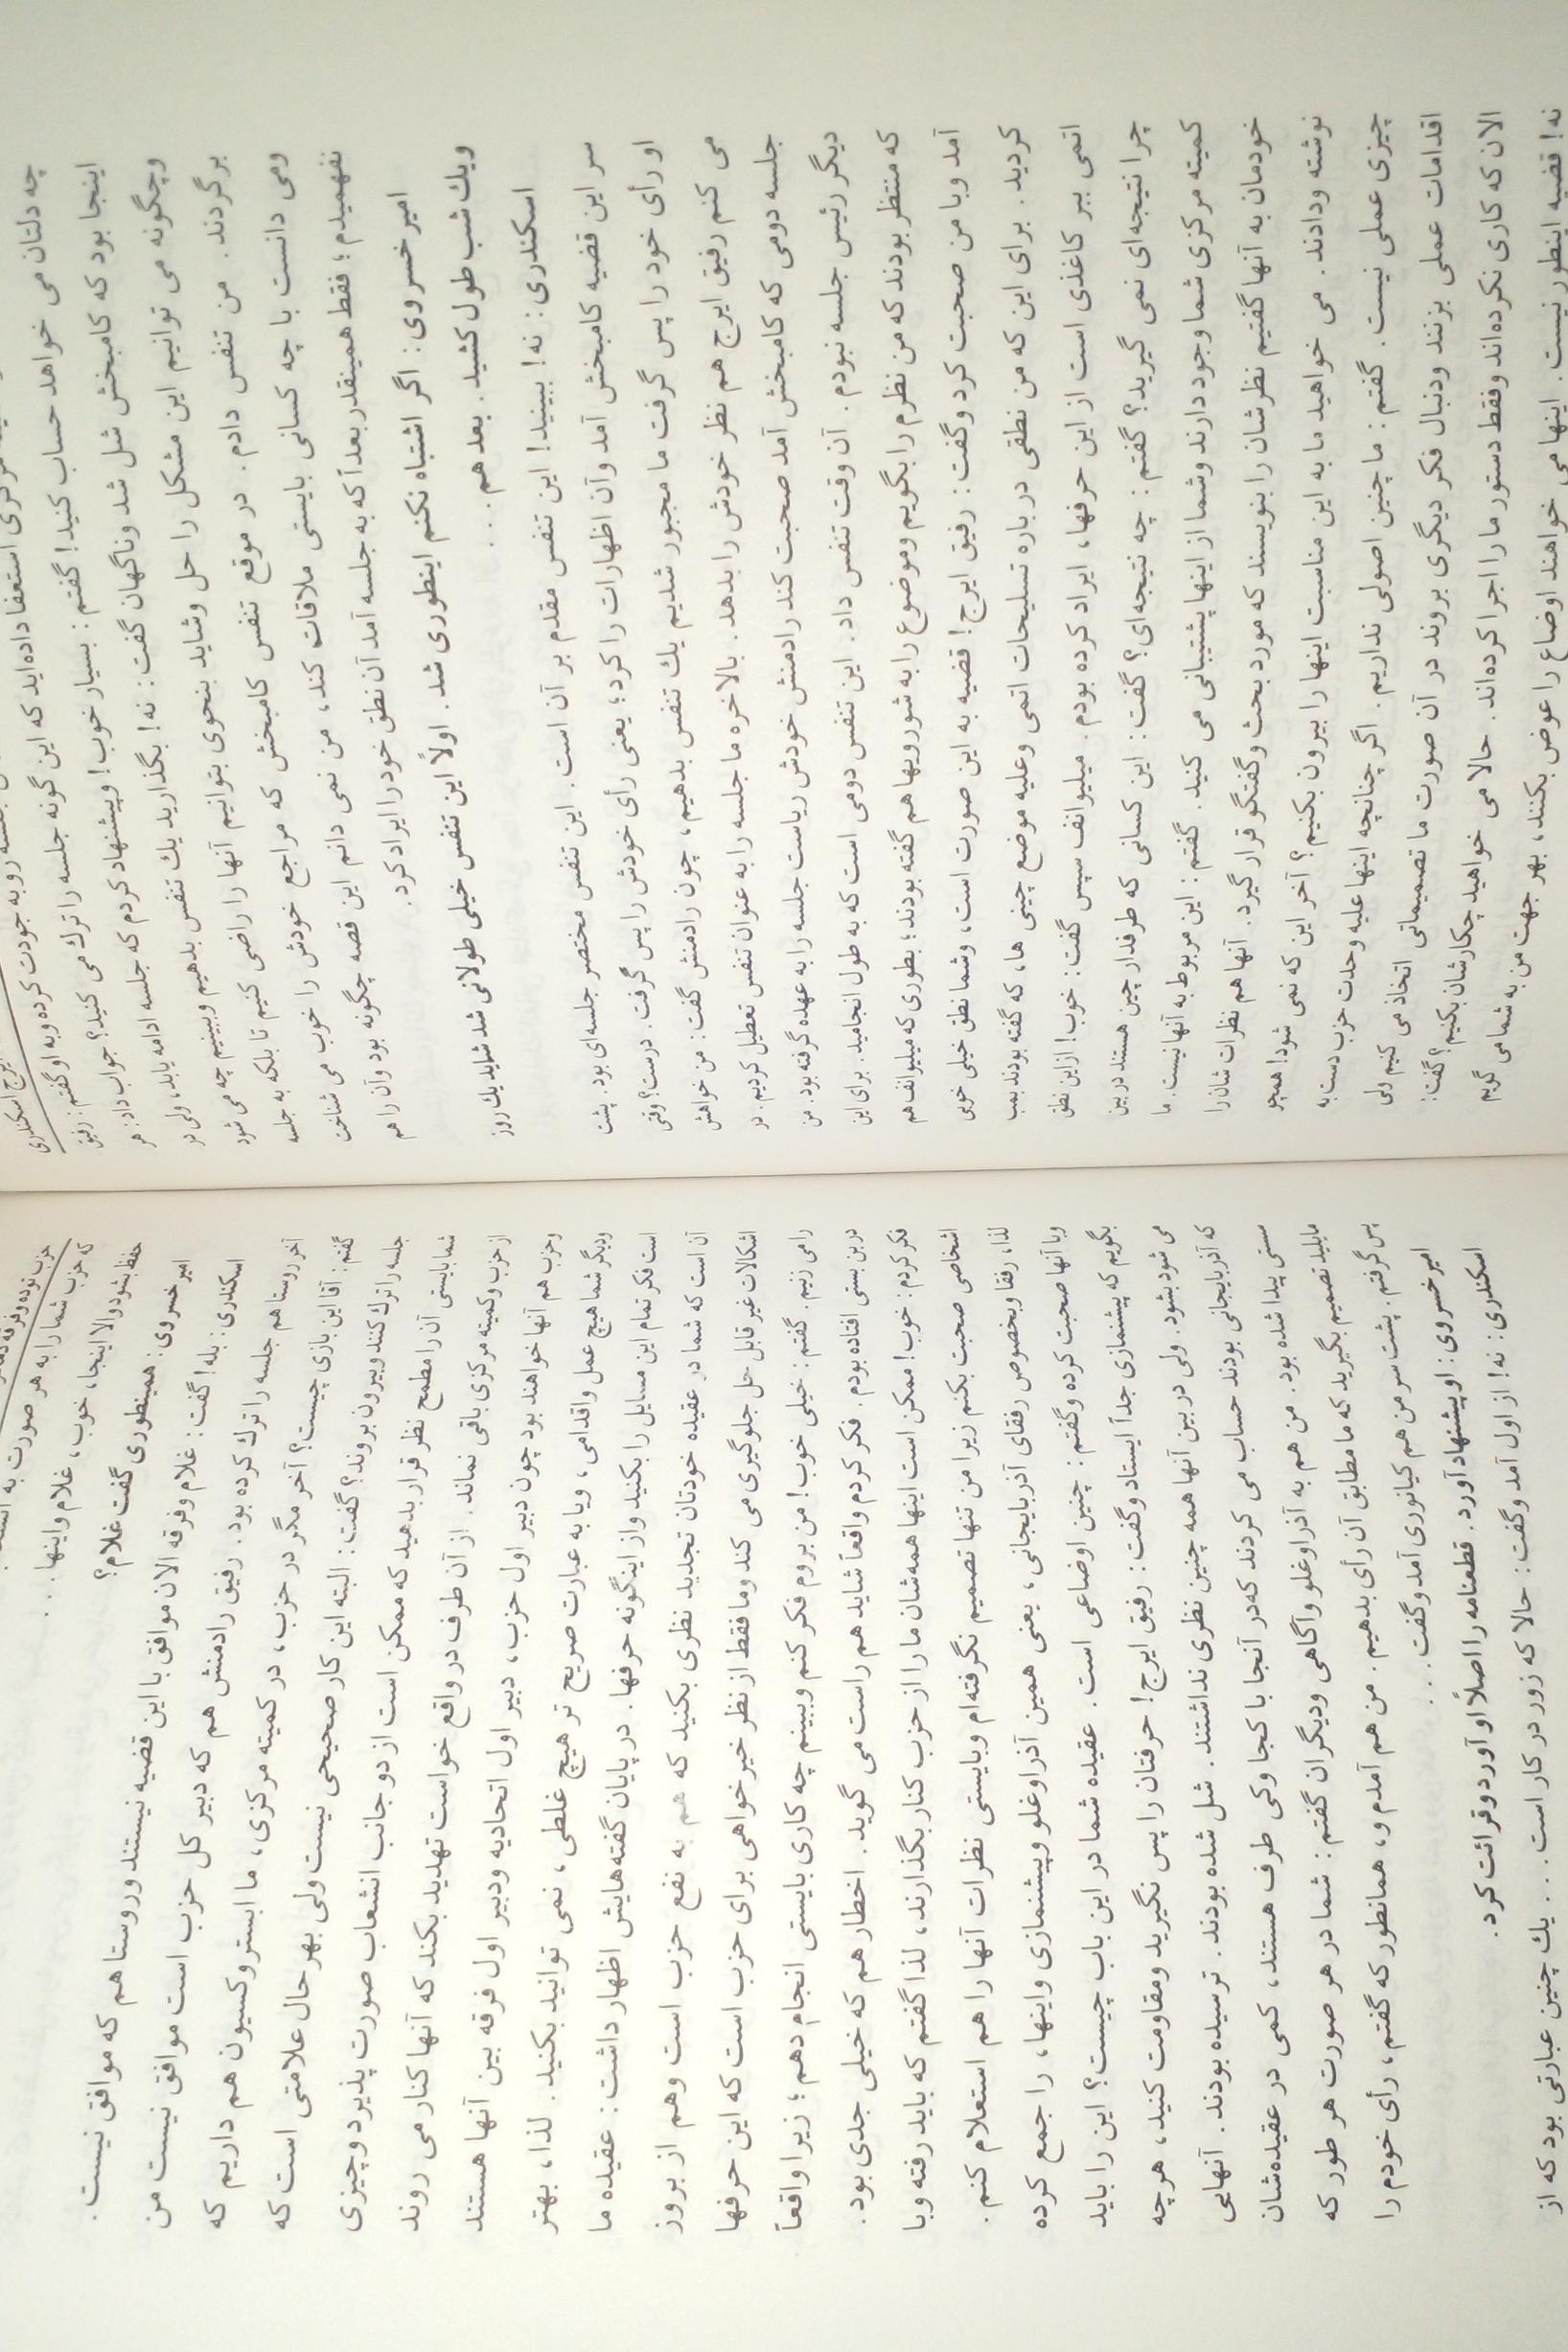 ایرج اسکندری
جلسه رو به جودت کرده وبه او گفتم: رفیق
مرکزی استعفا داده‌اید که این گونه جلسه را ترک می کنید؟ جواب داد: هر
چه دلتان می خواهد حساب کنید! گفتم: بسیار خوب! وپیشنهاد کردم که جلسه ادامه یابد، ولی در
اینجا بود که کامبخش شل شد وناگهان گفت: نه! بگذارید یك تنفس بدهیم وببینیم چه می شود
وچگونه می توانیم این مشکل را حل وشاید بنحوی بتوانیم آنها را راضی کنیم تا بلکه به جلسه
برگردند. من تنفس دادم. در موقع تنفس کامبخش که مراجع خودش را خوب می شناخت
ومی دانست با چه کسانی بایستی ملاقات کند، من نمی دانم این قصه چگونه بود وآن را هم
نفهمیدم؛ فقط همینقدر بعداً که به جلسه آمد آن نطق خود را ایراد کرد.
امیر خسروی: اگر اشتباه نکنم اینطوری شد. اولاً این تنفس خیلی طولانی شد شاید یك روز
ویك شب طول کشید. بعد هم . . .
اسکندری: نه! ببینید! این تنفس مقدم بر آن است. این تنفس مختصر جلسه‌ای بود. پشت
سر این قضیه کامبخش آمد وآن اظهارات را کرد؛ یعنی رأی خودش را پس گرفت. درست؟ وقتی
او رأی خود را پس گرفت ما مجبور شدیم یك تنفس بدهیم، چون رادمنش گفت: من خواهش
می کنم رفیق ایرج هم نظر خودش را بدهد. بالاخره ما جلسه را به عنوان تنفس تعطیل کردیم. در
جلسه دومی که کامبخش آمد صحبت کند رادمنش خودش ریاست جلسه را به عهده گرفته بود. من
دیگر رئیس جلسه نبودم. آن وقت تنفس داد. این تنفس دومی است که به طول انجامید. برای این
که منتظر بودند که من نظرم را بگویم وموضوع را به شورویها هم گفته بودند؛ بطوری که میلیوانف هم
آمد وبا من صحبت کرد وگفت: رفیق ایرج! قضیه به این صورت است، وشما نطق خیلی خوبی
کردید. برای این که من نطقی در باره تسلیحات اتمی وعلیه موضع چینی ها، که گفته بودند بمب
اتمی ببر کاغذی است از این حرفها، ایراد کرده بودم. میلیوانف سپس گفت: خوب! از این نطق
چرا نتیجه‌ای نمی گیرید؟ گفتم: چه نتیجه‌ای؟ گفت: این کسانی که طرفدار چین هستند در بین
کمیته مرکزی شما وجود دارند وشما از اینها پشتیبانی می کنید. گفتم: این مربوط به آنها نیست. ما
خودمان به آنها گفتیم نظرشان را بنویسند که مورد بحث وگفتگو قرار گیرد. آنها هم نظرات شان را
نوشته ودادند. می خواهید ما به این مناسبت اینها را بیرون بکنیم؟ آخر این که نمی شود! همچو
چیزی عملی نیست. گفتم: ما چنین اصولی نداریم. اگر چنانچه اینها علیه وحدت حزب دست به
اقدامات عملی بزنند ودنبال فکر دیگری بروند در آن صورت ما تصمیماتی اتخاذ می کنیم ولی
الان که کاری نکرده‌اند وفقط دستور ما را اجرا کرده‌اند. حالا می خواهید چکارشان بکنیم؟ گفت:
نه! قضیه اینطور نیست. اینها می خواهند اوضاع را عوض بکنند، بهر جهت من به شما می گویم
حزب توده وفرقه
که حزب شما را به هر صورت به
حفظ بشود والا اینجا، خوب، غلام واینها . . .
امیر خسروی: همینطوری گفت غلام؟
اسکندری: بله! گفت: غلام وفرقه الان موافق با این قضیه نیستند وروستا هم که موافق نیست.
آخر روستا هم جلسه را ترك کرده بود. رفیق رادمنش هم که دبیر کل حزب است موافق نیست من
گفتم: آقا این بازی چیست؟ آخر مگر در حزب، در کمیته مرکزی، ما ابستروکسیون هم داریم که
جلسه را ترك کنند وبیرون بروند؟ گفت: البته این کار صحیحی نیست ولی بهر حال علامتی است که
شما بایستی آن را مطمح نظر قرار بدهید که ممکن است از دو جانب انشعاب صورت پذیرد وچیزی
از حزب وکمیته مرکزی باقی نماند. از آن طرف در واقع خواست تهدید بکند که آنها کنار می روند
وحزب هم آنها خواهند بود چون دبیر اول حزب، دبیر اول اتحادیه ودبیر اول فرقه بین آنها هستند
ودیگر شما هیچ عمل واقدامی، ویا به عبارت صریح تر هیچ غلطی، نمی توانید بکنید. لذا، بهتر
است فکر تمام این مسایل را بکنید واز اینگونه حرفها. در پایان گفته‌هایش اظهار داشت: عقیده ما
آن است که شما در عقیده خودتان تجدید نظری بکنید که هم به نفع حزب است وهم از بروز
اشکالات غیر قابل حل جلوگیری می کند وما فقط از نظر خیرخواهی برای حزب است که این حرفها
را می زنیم. گفتم: خیلی خوب! من بروم فکر کنم وببینم چه کاری بایستی انجام دهم؛ زیرا واقعاً
در بن بستی افتاده بودم. فکر کردم واقعاً شاید هم راست می گوید. اخطار هم که خیلی جدی بود.
فکر کردم: خوب! ممکن است اینها همه‌شان ما را از حزب کنار بگذارند، لذا گفتم که باید رفته وبا
اشخاصی صحبت بکنم زیرا من تنها تصمیم نگرفته‌ام وبایستی نظرات آنها را هم استعلام کنم.
لذا، رفقا وبخصوص رفقای آذربایجانی، یعنی همین آذراوغلو وپیشنمازی واینها، را جمع کرده
وبا آنها صحبت کرده وگفتم: چنین اوضاعی است. عقیده شما در این باب چیست؟ این را باید
بگویم که پیشنمازی جداً ایستاد وگفت: رفیق ایرج! حرفتان را پس نگیرید ومقاومت کنید، هرچه
می شود بشود. ولی در بین آنها همه چنین نظری نداشتند. شل شده بودند. ترسیده بودند. آنهایی
که آذربایجانی بودند حساب می کردند که‌در آنجا با کجا وکی طرف هستند، کمی در عقیده‌شان
سستی پیدا شده بود. من هم به آذراوغلو وآگاهی ودیگران گفتم: شما در هر صورت هر طور که
مایلید تصمیم بگیرید که ما مطابق آن رأی بدهیم. من هم آمدم و، همانطور که گفتم، رأی خودم را
پس گرفتم. پشت سر من هم کیانوری آمد وگفت . . .
امیر خسروی: او پیشنهاد آورد. قطعنامه را اصلاً او آورد وقرائت کرد.
اسکندری: نه! از اول آمد وگفت: حالا که زور در کار است . . . یك چنین عبارتی بود که از